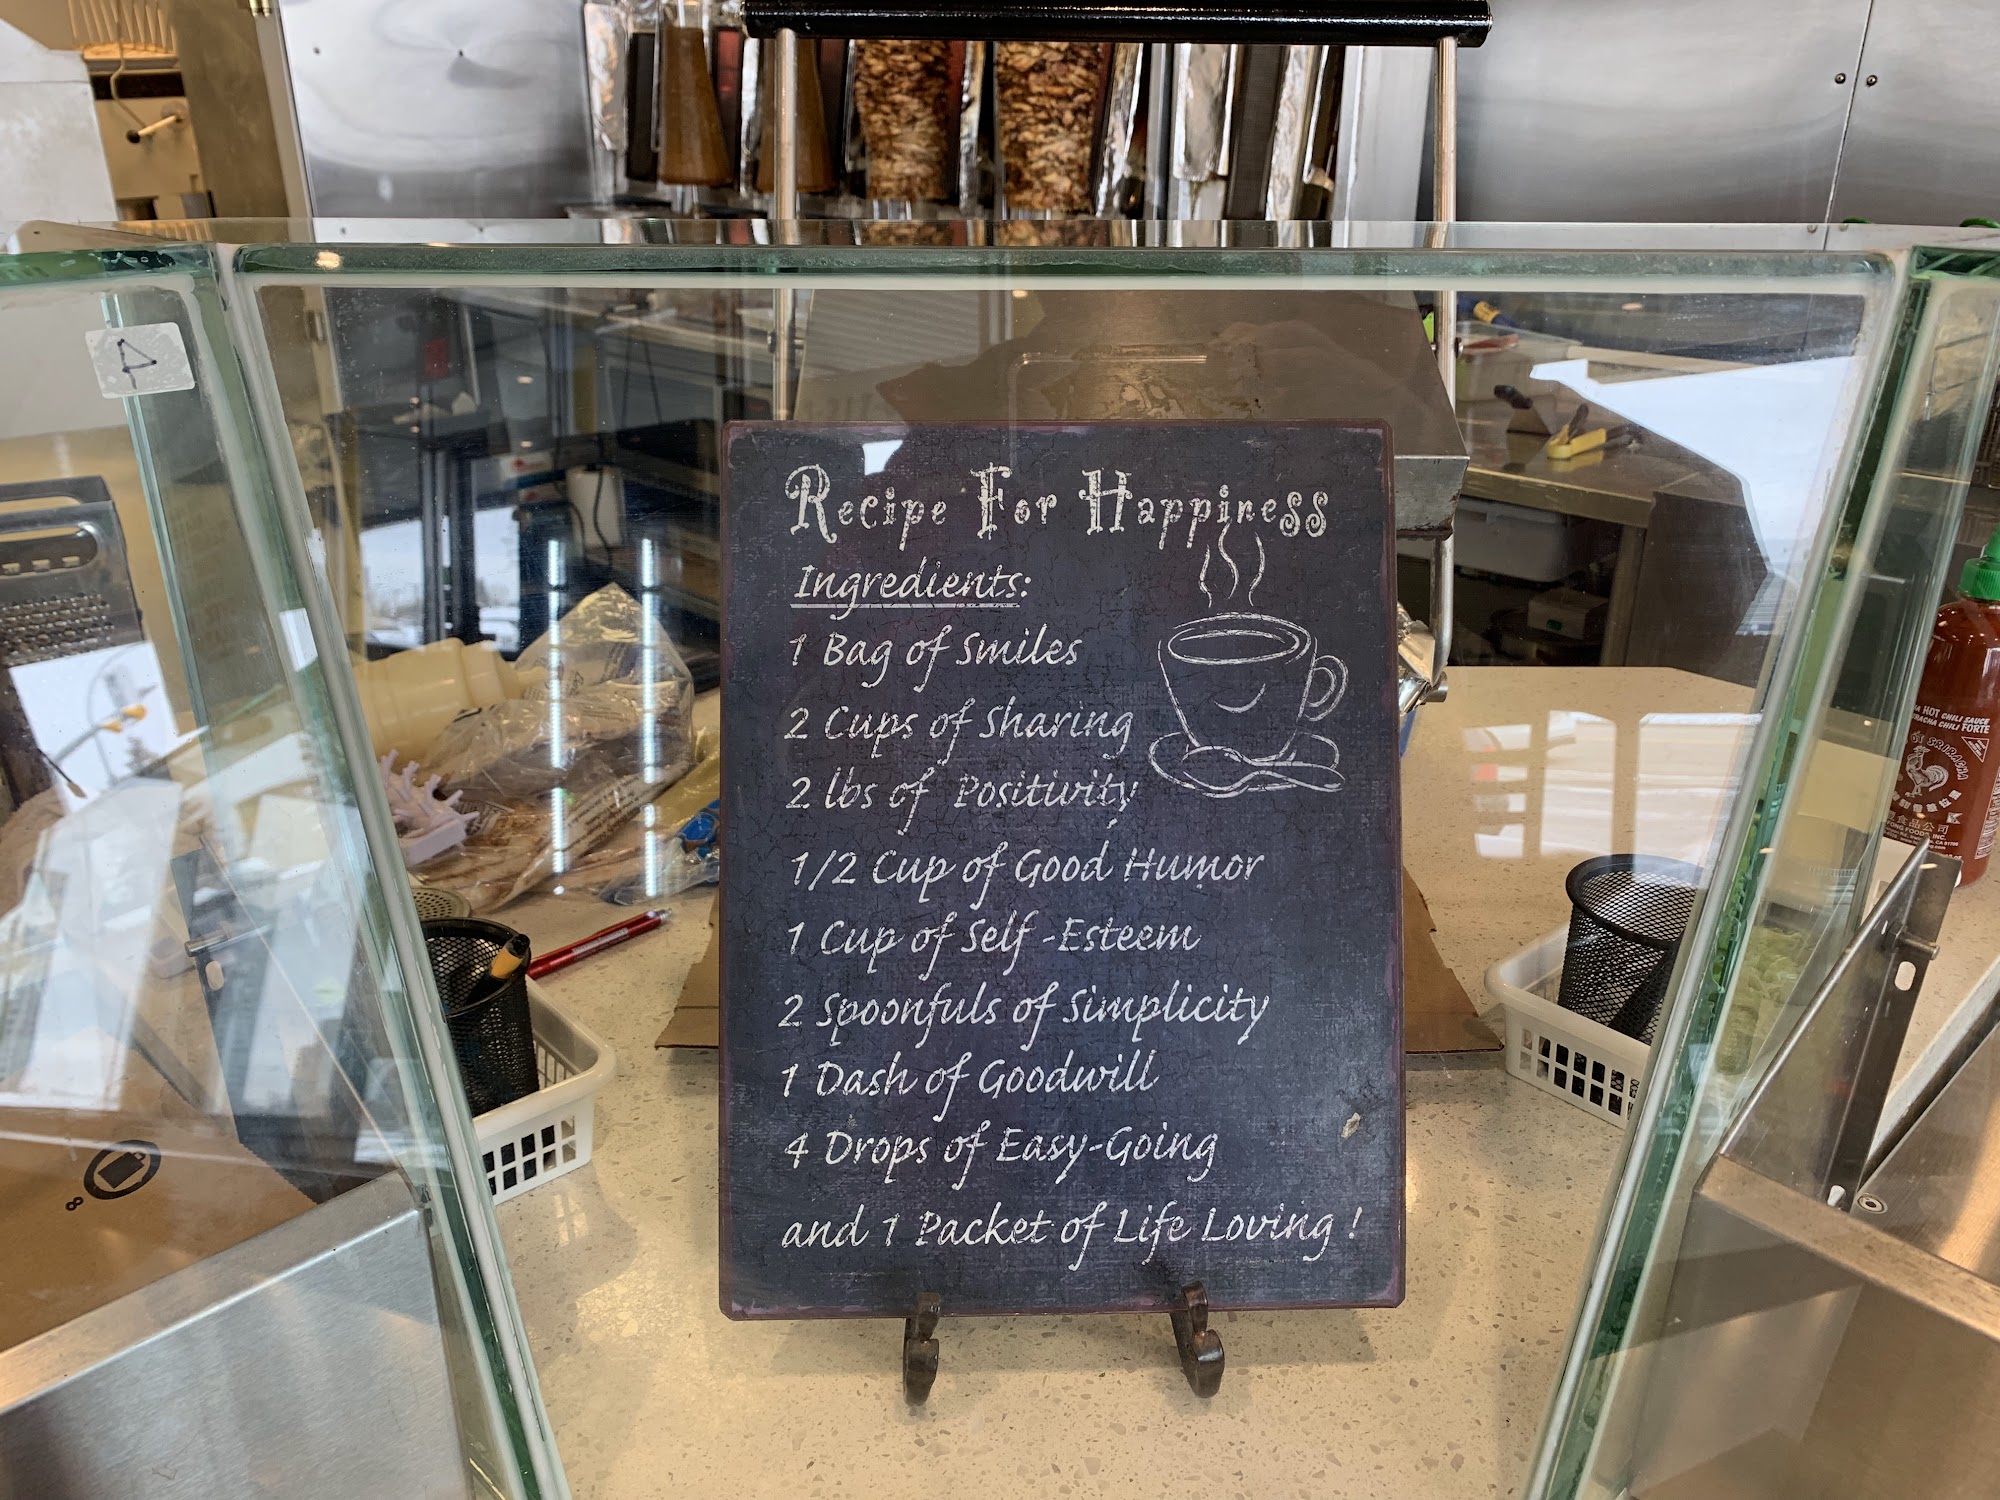 Recipe For Happiness
Ingredients:
1 Bag of Smiles
2 Cups of Sharing
2 lbs of Positivity
1/2 Cup of Good Humor
1 Cup of Self-Esteem
2 Spoonfuls of Simplicity
1 Dash of Goodwill
4 Drops of Easy-Going
and 1 Packet of Life Loving!
HOT CHILI SAUCE
SRIRACHA CHILI FORTE
SRIRACHA
8